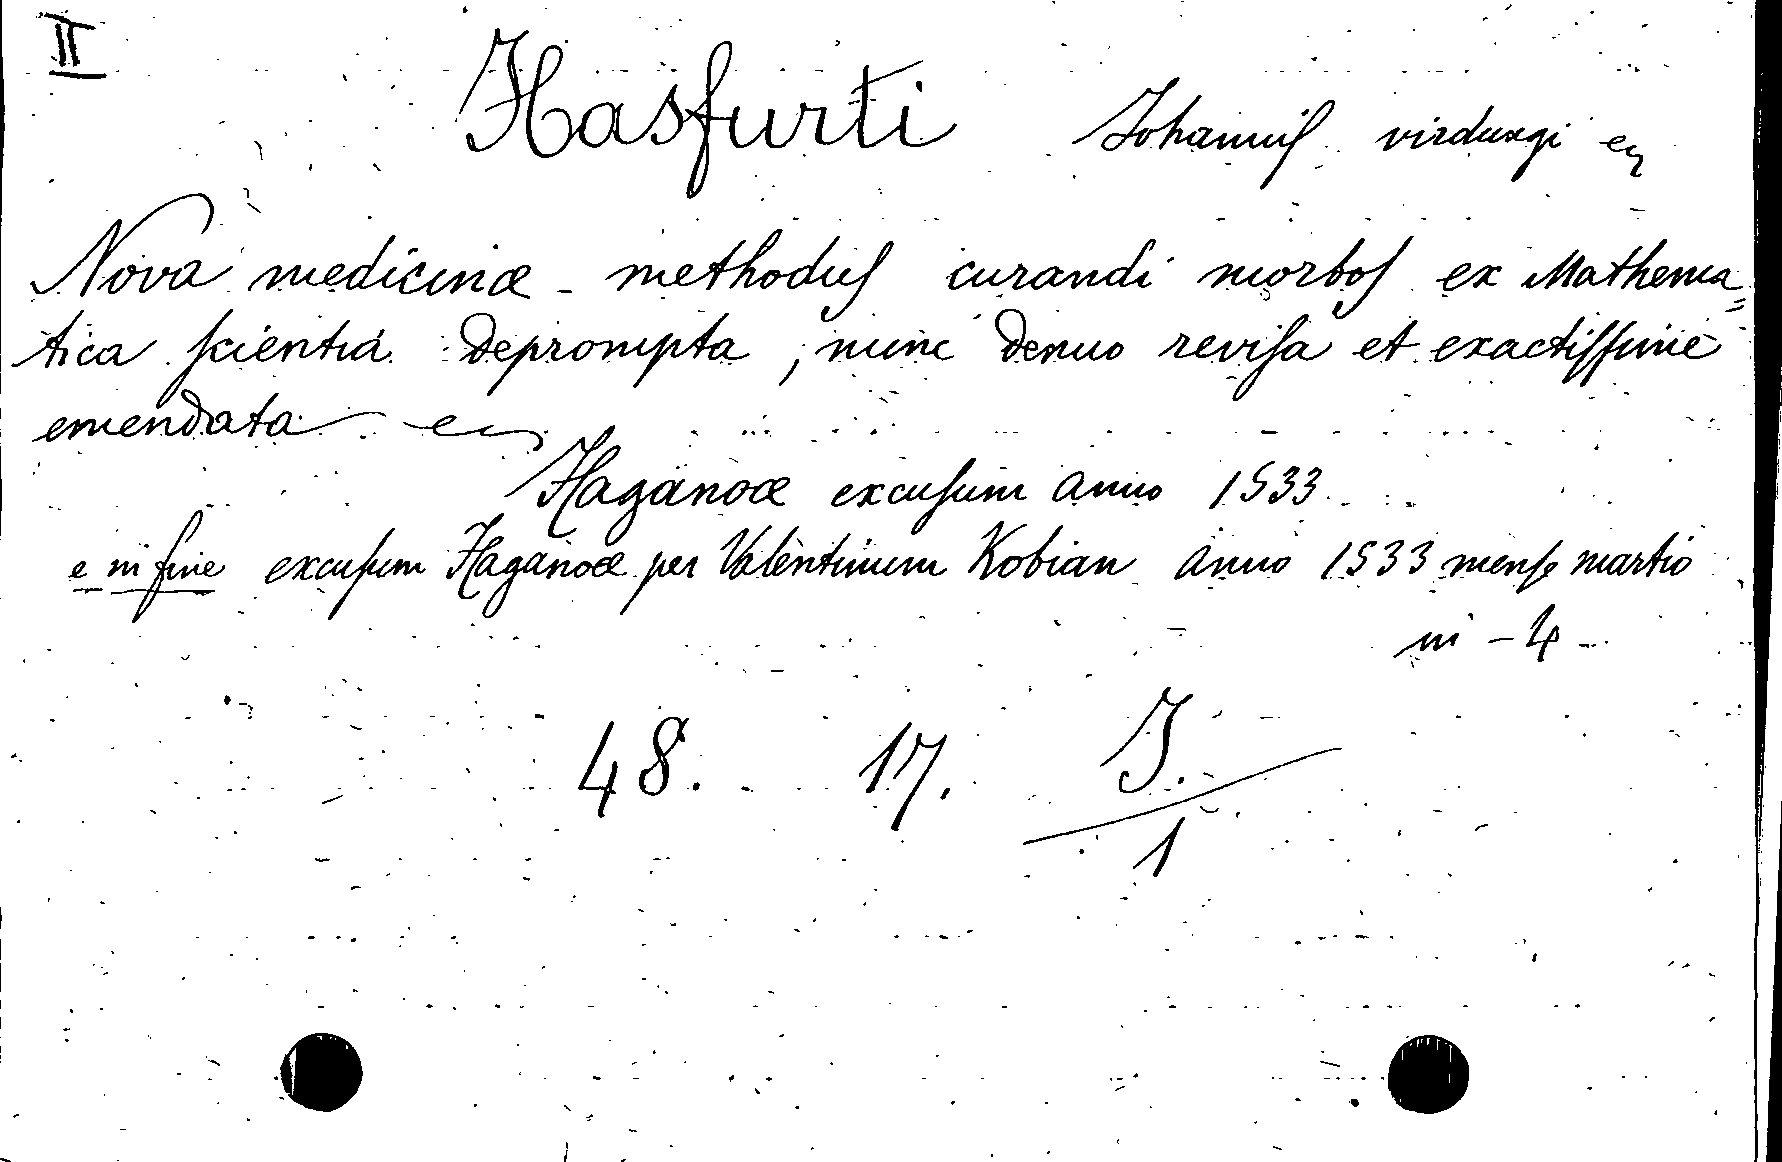 II
Hasfurti Johannis virdungi ec
Nova medicinæ methodus curandi morbos ex Mathema=
tica scientia deprompta, nunc denuo revisa et exactissime
emendata ec
Haganoæ excusum anno 1533
e in fine excusum Haganoæ per Valentinum Kobian anno 1533 mense martio
in - 4 -
48. 17. J.
1